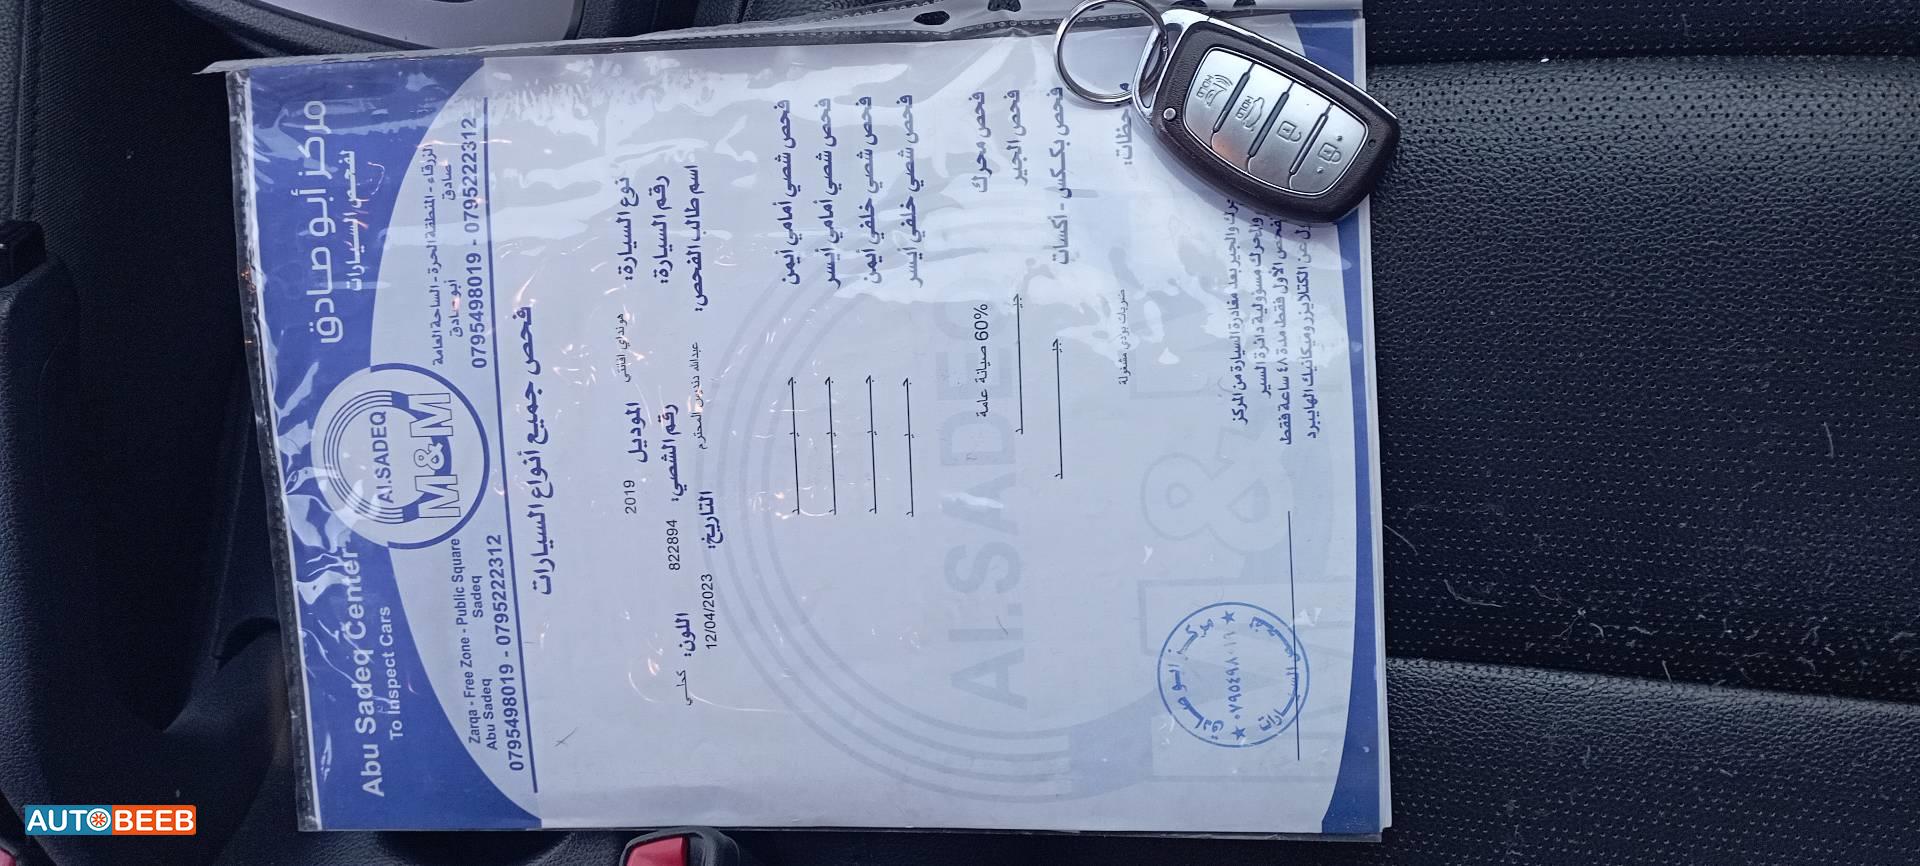 مركز أبو صادق
لفحص السيارات
الزرقاء - المنطقة الحرة - الساحة العامة
أبو صادق صادق
0795498019 - 0795222312
AL.SADEQ
M&M
Abu Sadeq Center
To Inspect Cars
Zarqa - Free Zone - Public Square
Abu Sadeq Sadeq
0795498019 - 0795222312
فحص جميع أنواع السيارات
نوع السيارة: هونداي افانتي الموديل 2019
رقم السيارة: رقم الشصي: 822894 اللون: كحلي
اسم طالب الفحص: عبدالله المحترم التاريخ: 12/04/2023
فحص شصي أمامي أيمن جيد
فحص شصي أمامي أيسر جيد
فحص شصي خلفي أيمن جيد
فحص شصي خلفي أيسر جيد
فحص محرك 60% صيانة عامة
فحص الجير جيد
فحص بكس - اكسات جيد
ضربات بودي مشغولة
والجير بعد مغادرة السيارة من المركز
والمحرك مسؤولية دائرة السير
الأول فقط مدة ٤٨ ساعة فقط
عن الكتلايزر وميكانيك الهايبرد
AL.SADEQ
M&M
مركز ابو صادق
٠٧٩٥٤٩٨٠١٩
لفحص السيارات
HOLD
AUTOBEEB